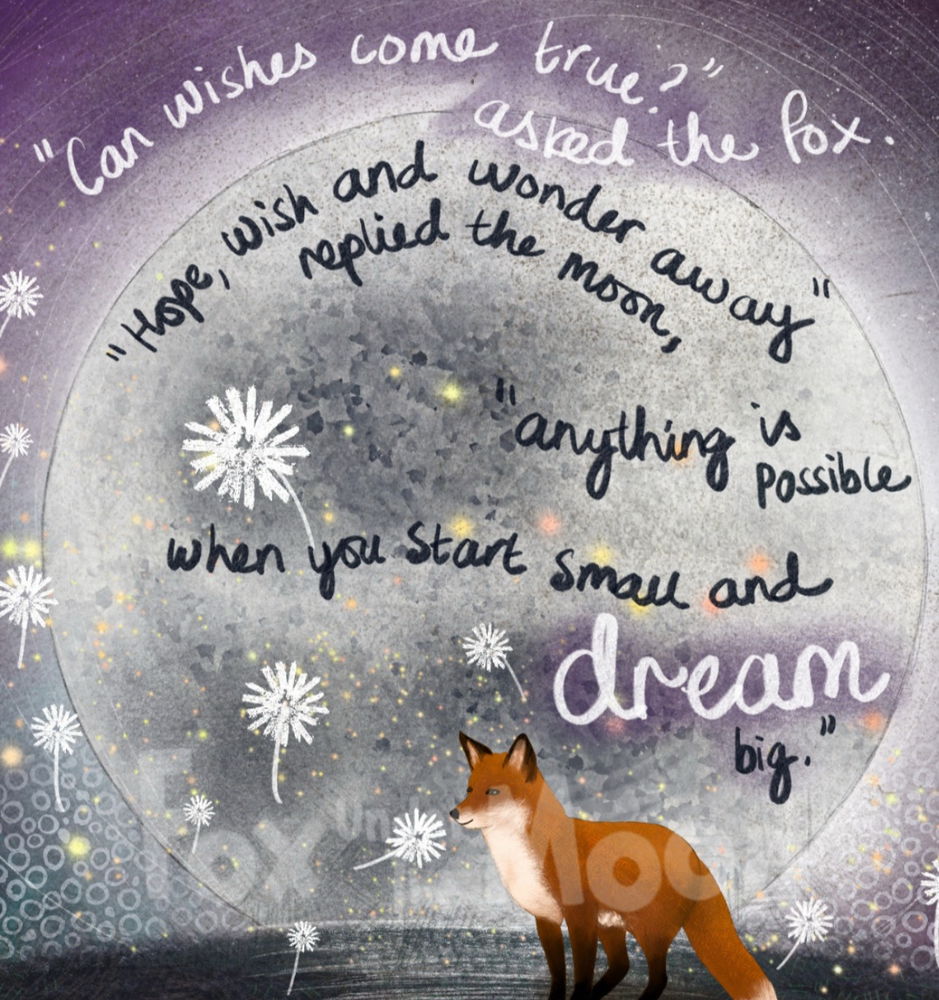 "Can wishes come true?"
asked the fox.
"Hope, wish and wonder away"
replied the moon,
"anything is
possible
when you start small and
dream
big."
Fox Un
Moo